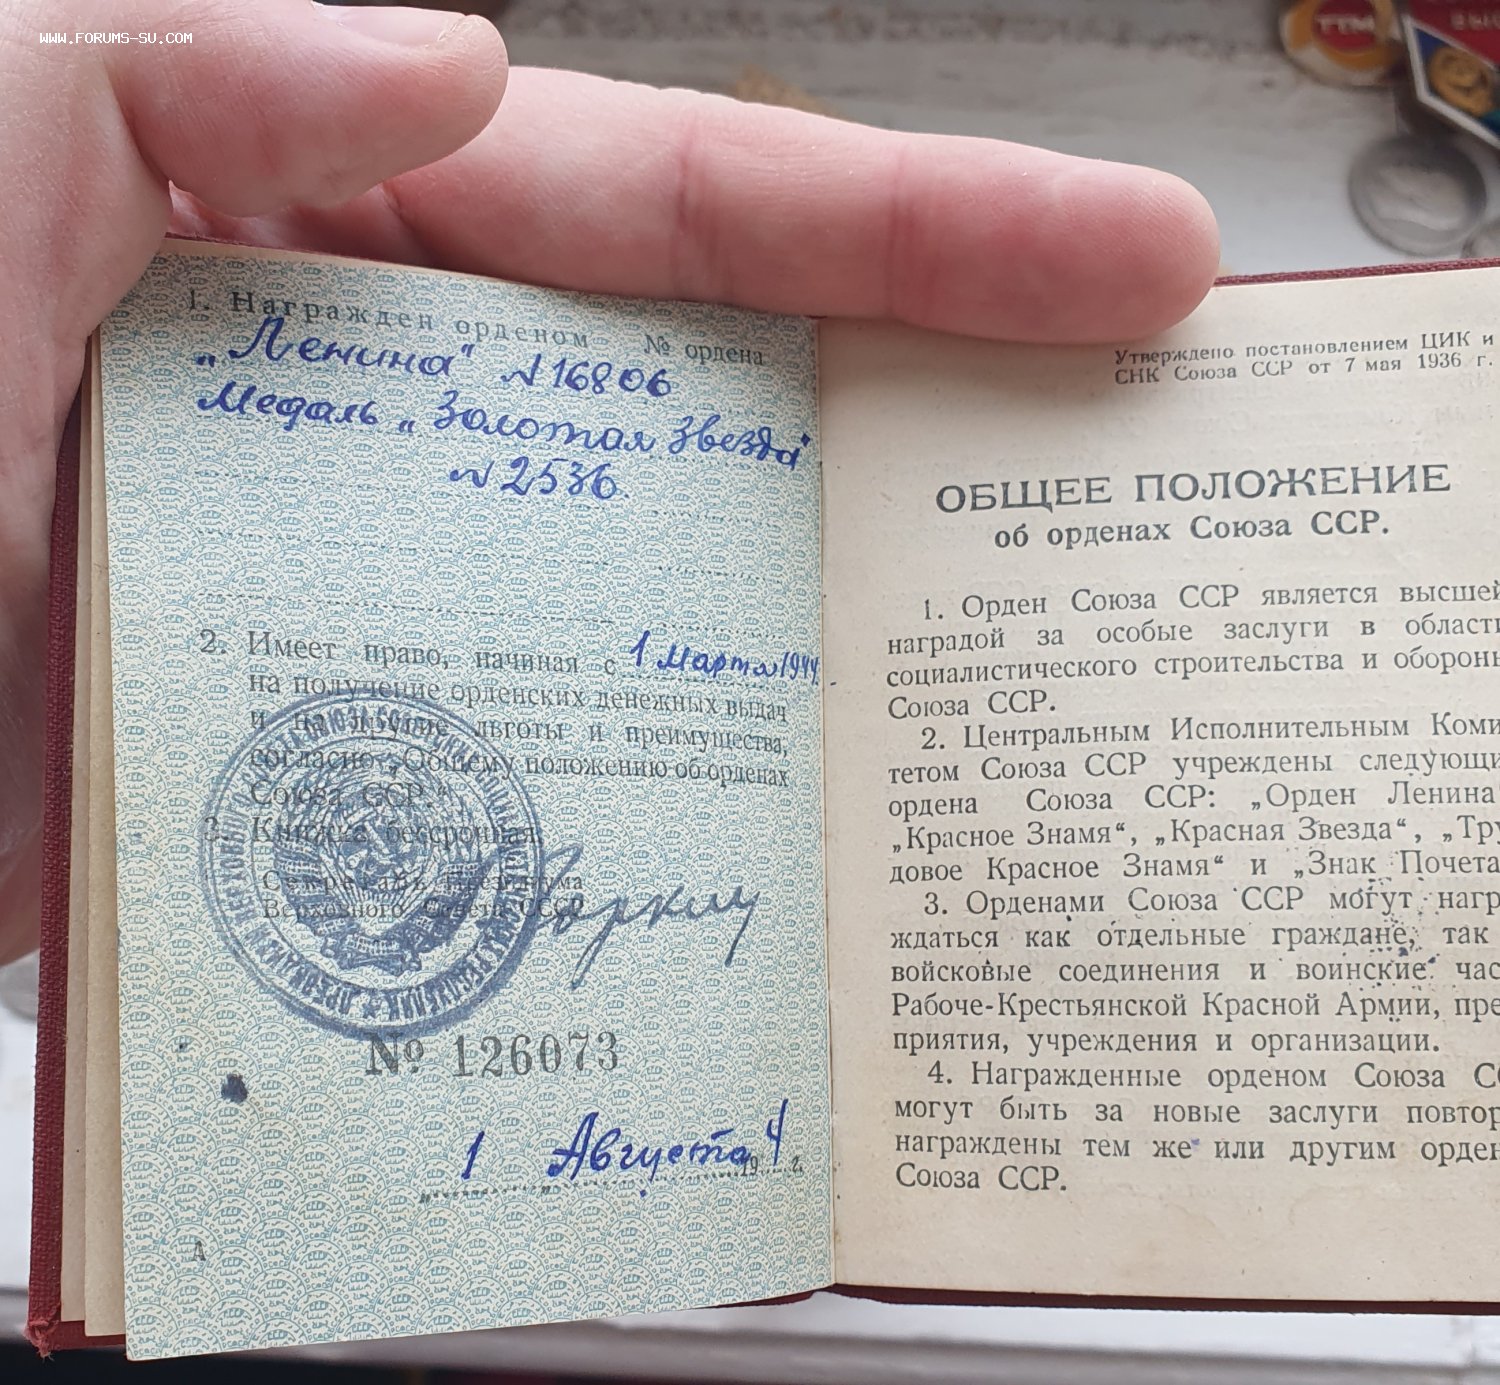 WWW.FORUMS-SU.COM
1. Награжден орденом № ордена
„Ленина“ №16806
Медаль „Золотая Звезда“
№2536.
2. Имеет право, начиная с 1 Марта 1944
на получение орденских денежных выдач
и на другие льготы и преимущества,
согласно „Общему положению об орденах
Союза ССР.“
3. Книжка бессрочная.
Секретарь Президиума
Верховного Совета СССР
№ 126073
1 Августа 194 г.
А
Утверждено постановлением ЦИК и
СНК Союза ССР от 7 мая 1936 г.
ОБЩЕЕ ПОЛОЖЕНИЕ
об орденах Союза ССР.
1. Орден Союза ССР является высшей
наградой за особые заслуги в области
социалистического строительства и обороны
Союза ССР.
2. Центральным Исполнительным Коми
тетом Союза ССР учреждены следующи
ордена Союза ССР: „Орден Ленина
„Красное Знамя“, „Красная Звезда“, „Тру
довое Красное Знамя“ и „Знак Почета
3. Орденами Союза ССР могут нагр
ждаться как отдельные граждане, так
войсковые соединения и воинские час
Рабоче-Крестьянской Красной Армии, пре
приятия, учреждения и организации.
4. Награжденные орденом Союза СС
могут быть за новые заслуги повтор
награждены тем же или другим орден
Союза ССР.